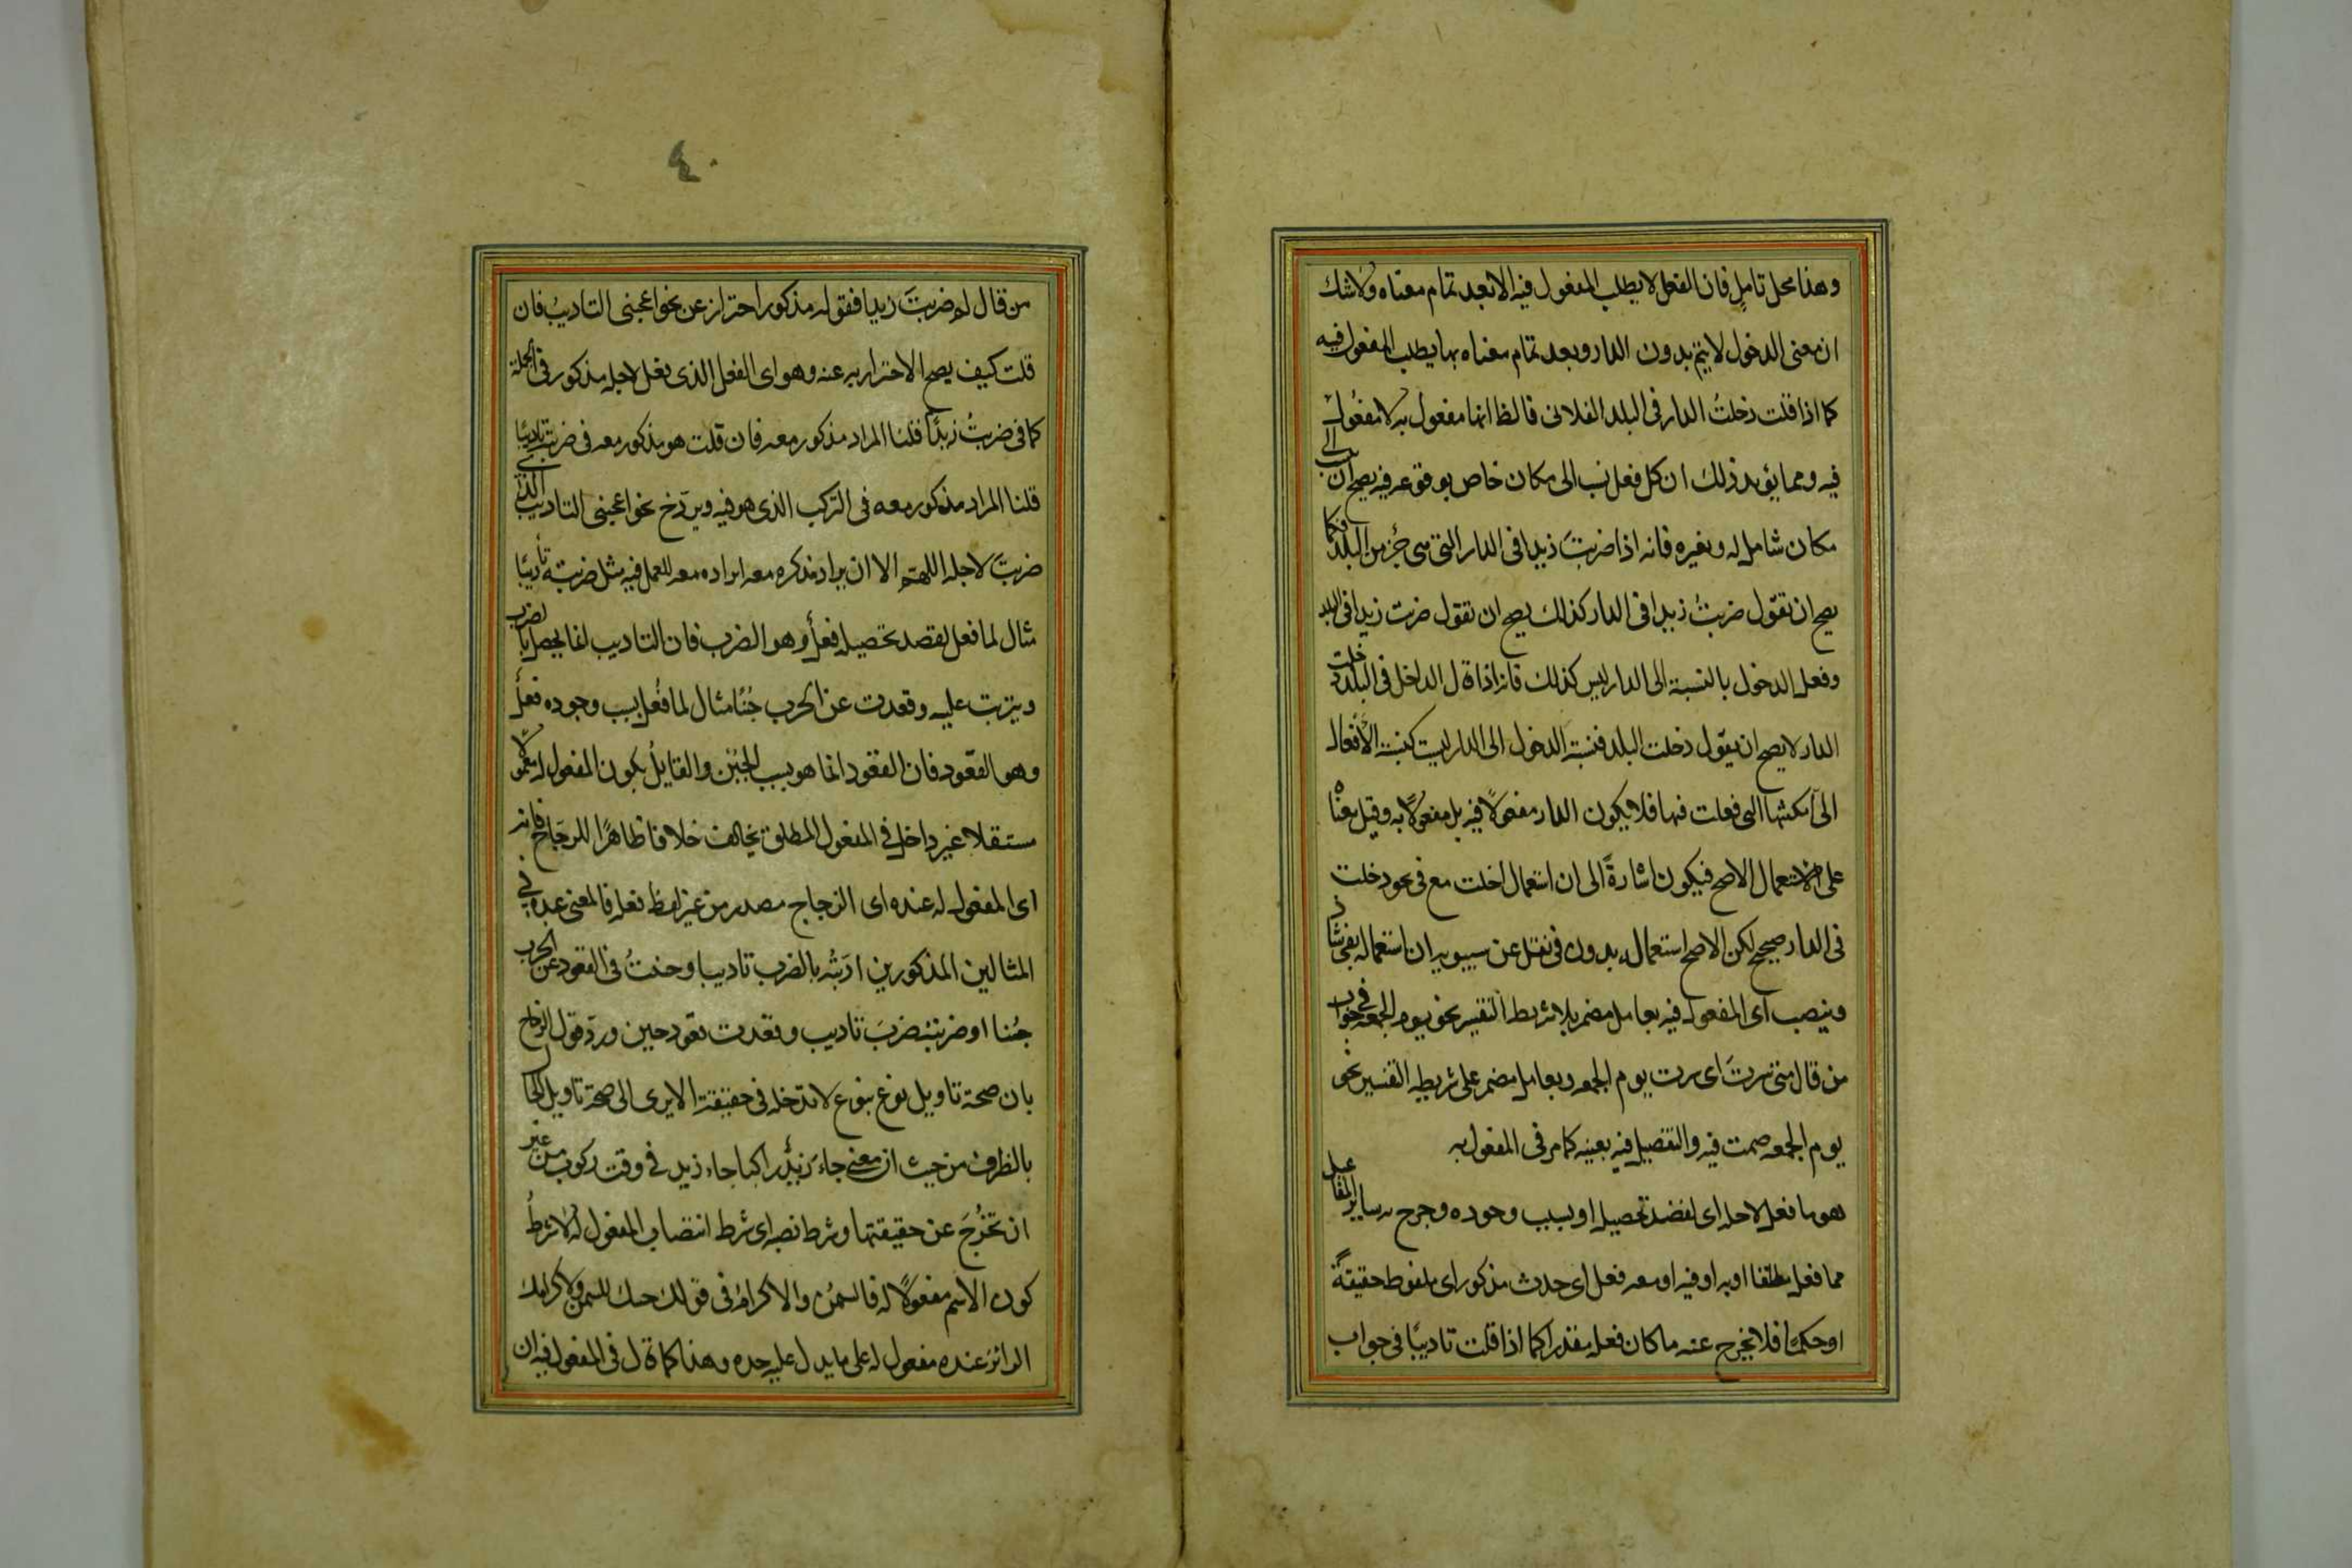 وهذا محل تامل فان الفعل لا يطلب المفعول فيه الا بعد تمام معناه ولا شك
ان معنى الدخول لا يتم بدون الدار وبعد تمام معناه بها يطلب المفعول فيه
كما اذا قلت دخلتُ الدار فى البلد الفلانى فالظ انها مفعول به لا مفعُول
فيه ومما يؤيد ذلك ان كل فعل نسب الى مكان خاص بوقوعه فيه يصح ان ينسب الى
مكان شامل له ولغيره فانه اذا ضربتَ زيدا فى الدار التى هى جُزء من البلد فكما
يصح ان تقول ضربتُ زيدا فى الدار كذلك يصح ان تقول ضربت زيدا فى البلد
وفعل الدخول بالنسبة الى الدار ليس كذلك فانه اذا قال الداخل فى البلد دخلت
الدار لا يصح ان يقول دخلت البلد فنسبة الدخول الى الدار ليست كنسبة الافعال
الى امكنتها التى فعلت فيها فلا يكون الدار مفعولًا فيه بل مفعولًا به وقيل معناه
على الاستعمال الاصح فيكون اشارةً الى ان استعمال دخلت مع فى نحو دخلت
فى الدار صحيح لكن الاصح استعماله بدون فى نقل عن سيبويه ان استعماله بفى شاذ
وينصب اى المفعول فيه بعامل مضمر بلا شريطة التفسير نحو يوم الجمعه فى جواب
من قال متى سرتَ اى سرت يوم الجمعه وبعامل مضمر على شريطه التفسير نحو
يوم الجمعه صمت فيه والتفصيل فيه بعينه كما مر فى المفعول به
هو ما فعل لاجله اى لقصد تحصيله او بسبب وجوده وخرج به ساير المفاعيل
مما فعل مطلقا او به او فيه او معه فعل اى حدث مذكور اى ملفوظ حقيقةً
او حكمًا فلا يخرج عنه ما كان فعله مقدرا كما اذا قلت تاديبًا فى جواب
٤٠
من قال لم ضربتَ زيدا فقوله مذكور احتراز عن نحو اعجبنى التاديبُ فان
قلت كيف يصح الاحتراز به عنه وهو اى الفعل الذى فعل لاجله مذكور فى الجملة
كما فى ضربتُ زيدًا قلنا المراد مذكور معه فان قلت هو مذكور معه فى ضربته تاديبًا
قلنا المراد مذكور معه فى التركيب الذى هو فيه ويرد ح نحو اعجبنى التاديب الذى
ضربتَ لاجله اللهم الا ان يراد بذكره معه ايراده معه للعمل فيه مثل ضربته تأديبًا
مثال لما فعل لقصد تحصيله فعل وهو الضرب فان التاديب انما يحصل بالضرب
ويترتب عليه وقعدت عن الحرب جُبنًا مثال لما فُعل بسبب وجوده فعل
وهو القعود فان القعود انما هو بسبب الجُبن والقايل بكون المفعول له معمولا
مستقلا غير داخل فى المفعول المطلق يخالف خلافا ظاهرًا للزجاج فانه
اى المفعول له عنده اى الزجاج مصدر من غير لفظ فعله فالمعنى عنده فى
المثالين المذكورين ادبته بالضرب تاديبا وجبنتُ فى القعود عن الحرب
جُبنا او ضربته ضربَ تاديب وقعدت قعود جبن ورد قول الزجاج
بان صحة تاويل نوع بنوع لا تدخله فى حقيقته الا يرى الى صحة تاويل الحال
بالظرف من حيث ان معنى جاء زيدٌ راكبا جاء زيد فى وقت ركوب من غير
ان تخرُج عن حقيقتها وشرط نصبه اى شرط انتصاب المفعول له لا شرطُ
كون الاسم مفعولًا له فالسمن والاكرام فى قولك جئتك للسمن ولاكرامك
الزائر عنده مفعول له على ما يدل عليه حده وهذا كما قال فى المفعول فيه ان